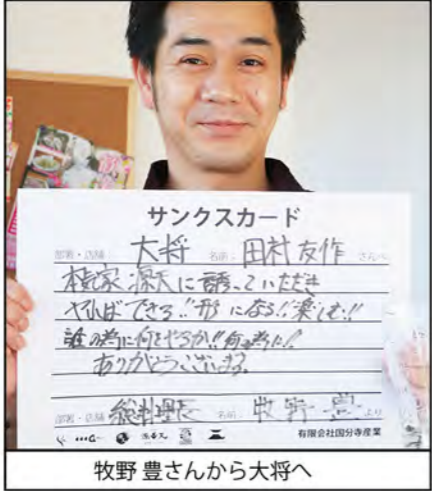 サンクスカード
部署・店舗 大将 名前 田村 友作 さんへ
源天に誘っていただき
やればできる!!形になる!!楽しむ!!
誰の為に何をやるか!!何の為に!!
ありがとうございます。
部署・店舗 総料理長 名前 牧野 豊 より
有限会社国分寺産業
牧野 豊さんから大将へ